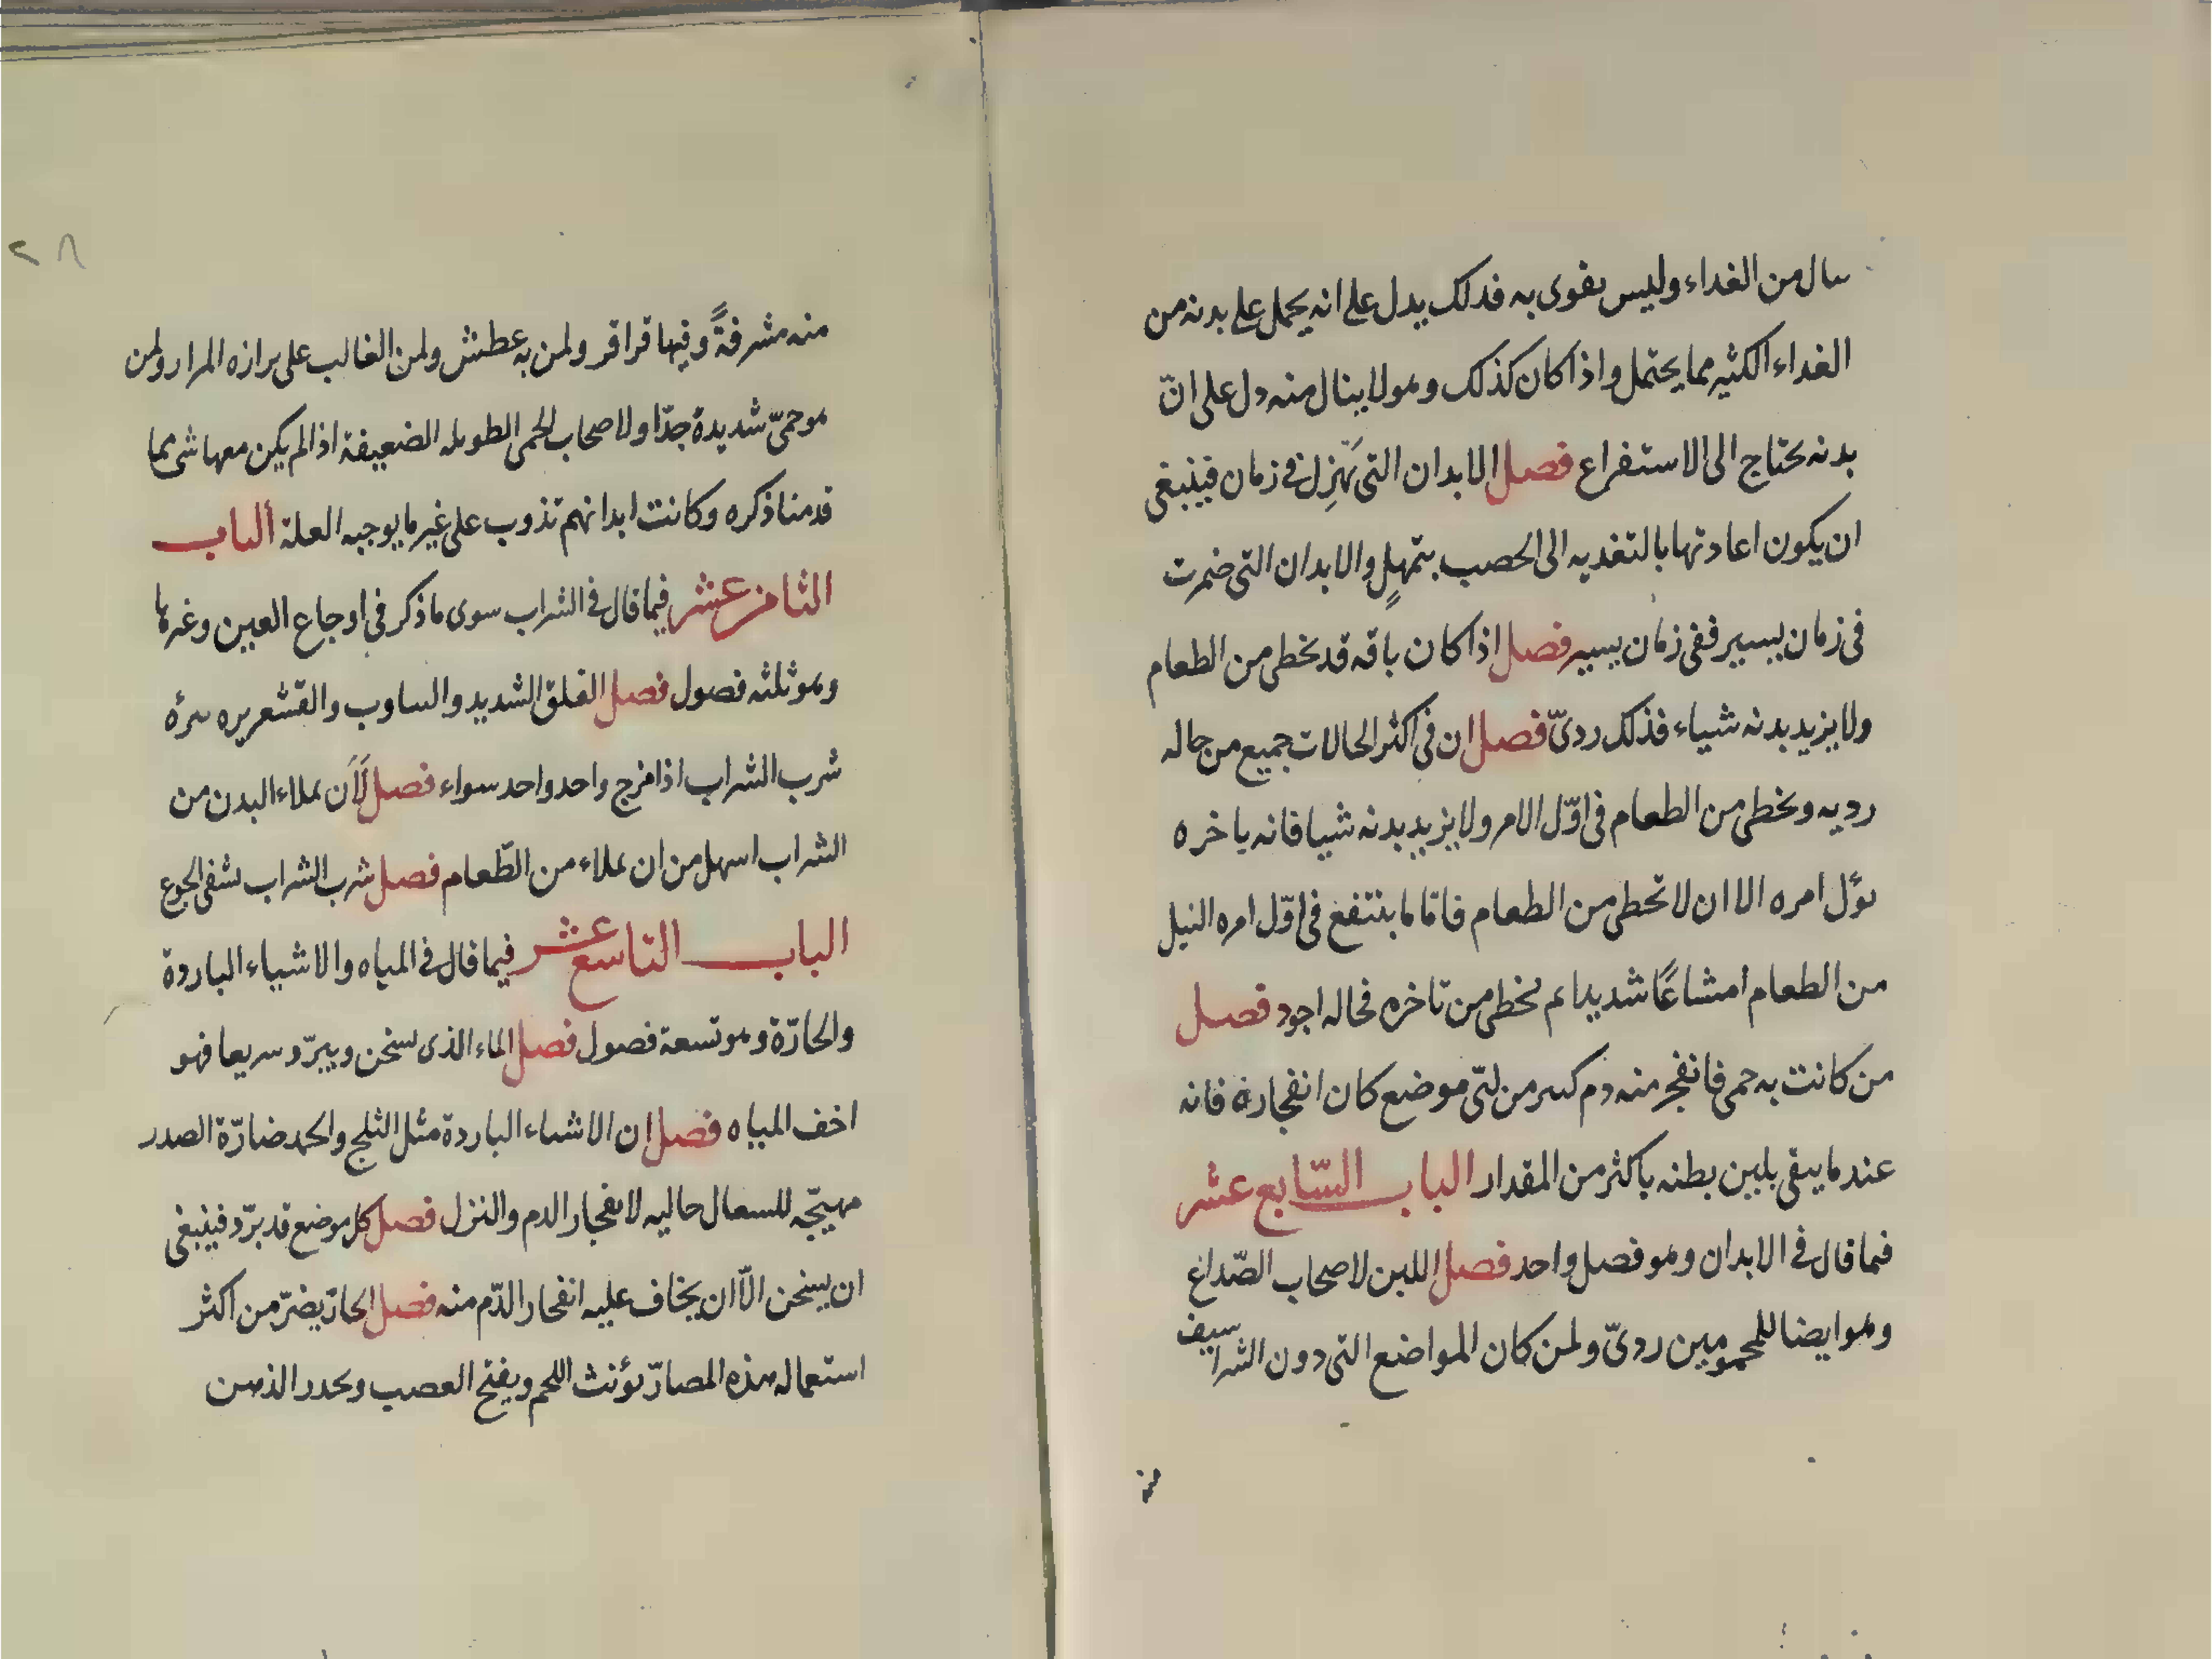 سال من الغداء وليس يقوى به فدلك يدل على انه يحمل على بدنه من
الغداء الكثير مما يحتمل واذا كان كذلك وهو لا ينال منه دل على انّ
بدنه يحتاج الى الاستفراع فصل الابدان التى تهزل في زمان فينبغى
ان يكون اعادتها بالتغديه الى الخصب بتمهلٍ والابدان التى ضمرت
فى زمان يسير ففى زمان يسير فصل اذا كان باقه قد يخطى من الطعام
ولا يزيد بدنه شياء فذلك ردىّ فصل ان فى اكثر الحالات جميع من حاله
رديه ويخطى من الطعام فى اوّل الامر ولا يزيد بدنه شيا فانه باخره
يؤل امره الا ان لا تحطى من الطعام فاما ما ينتفع فى اوّل امره النيل
من الطعام امتناعًا شديدا ثم يخطى من تاخره فحاله اجود فصل
من كانت به حمى فانفجر منه دم كثير من اىّ موضع كان انفجاره فانه
عند ما يبقى يلين بطنه باكثر من المقدار الباب السّابع عشر
فيما قال في الابدان وهو فصل واحد فصل اللبن لاصحاب الصّداع
وهو ايضا للمحمومين ردىّ ولمن كان المواضع التى دون الشراسيف
منه
٢٨
منه مشرفةً وفيها قراقر ولمن به عطش ولمن الغالب على برازه المرار ولمن
هو حمىّ شديدة جدّا ولاصحاب الحمى الطويله الضعيفة اذا لم يكن معها شى مما
قدمنا ذكره وكانت ابدانهم تذوب على غير ما يوجبه العلة الباب
الثامن عشر فيما قال في الشراب سوى ما ذكر فى اوجاع العين وغيرها
وهو ثلثه فصول فصل القلق الشديد والتثاوب والقشعريره يبرئه
شرب الشراب اذا مزج واحد واحد سواء فصل لَاَن يملاء البدن من
الشراب اسهل من ان يملاء من الطّعام فصل شرب الشراب يشفى الجوع
الباب التاسع عشر فيما قال في المياه والاشياء الباردة
والحارّة وهو تسعة فصول فصل الماء الذى يسخن ويبرّد سريعا فهو
اخف المياه فصل ان الاشياء الباردة مثل الثلج والجمد ضارّة الصدر
مهيّجه للسعال جالبه لانفجار الدم والنزل فصل كل موضع قد برّد فينبغى
ان يسخن الّا ان يخاف عليه انفجار الدّم منه فصل الحارّ يضرّ من اكثر
استعماله هذه المضارّ يؤنث اللحم ويفتح العصب ويخدر الذهن